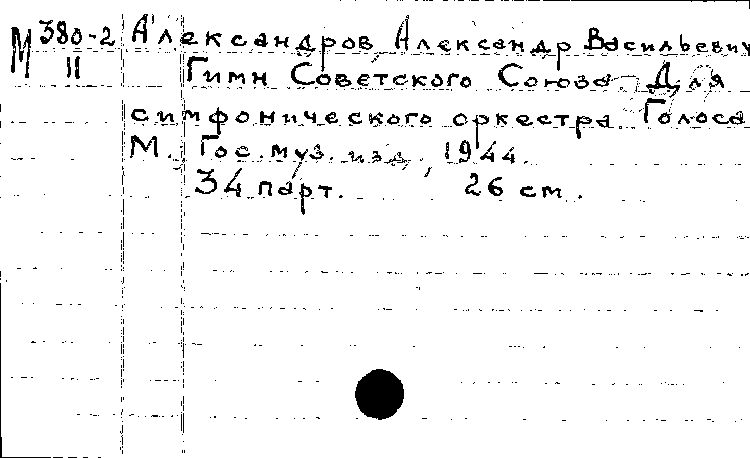 М 380-2 Александров, Александр Васильевич
11 Гимн Советского Союза. Для
симфонического оркестра. Голоса
М., Гос. муз. изд., 1944.
34 парт. 26 см.